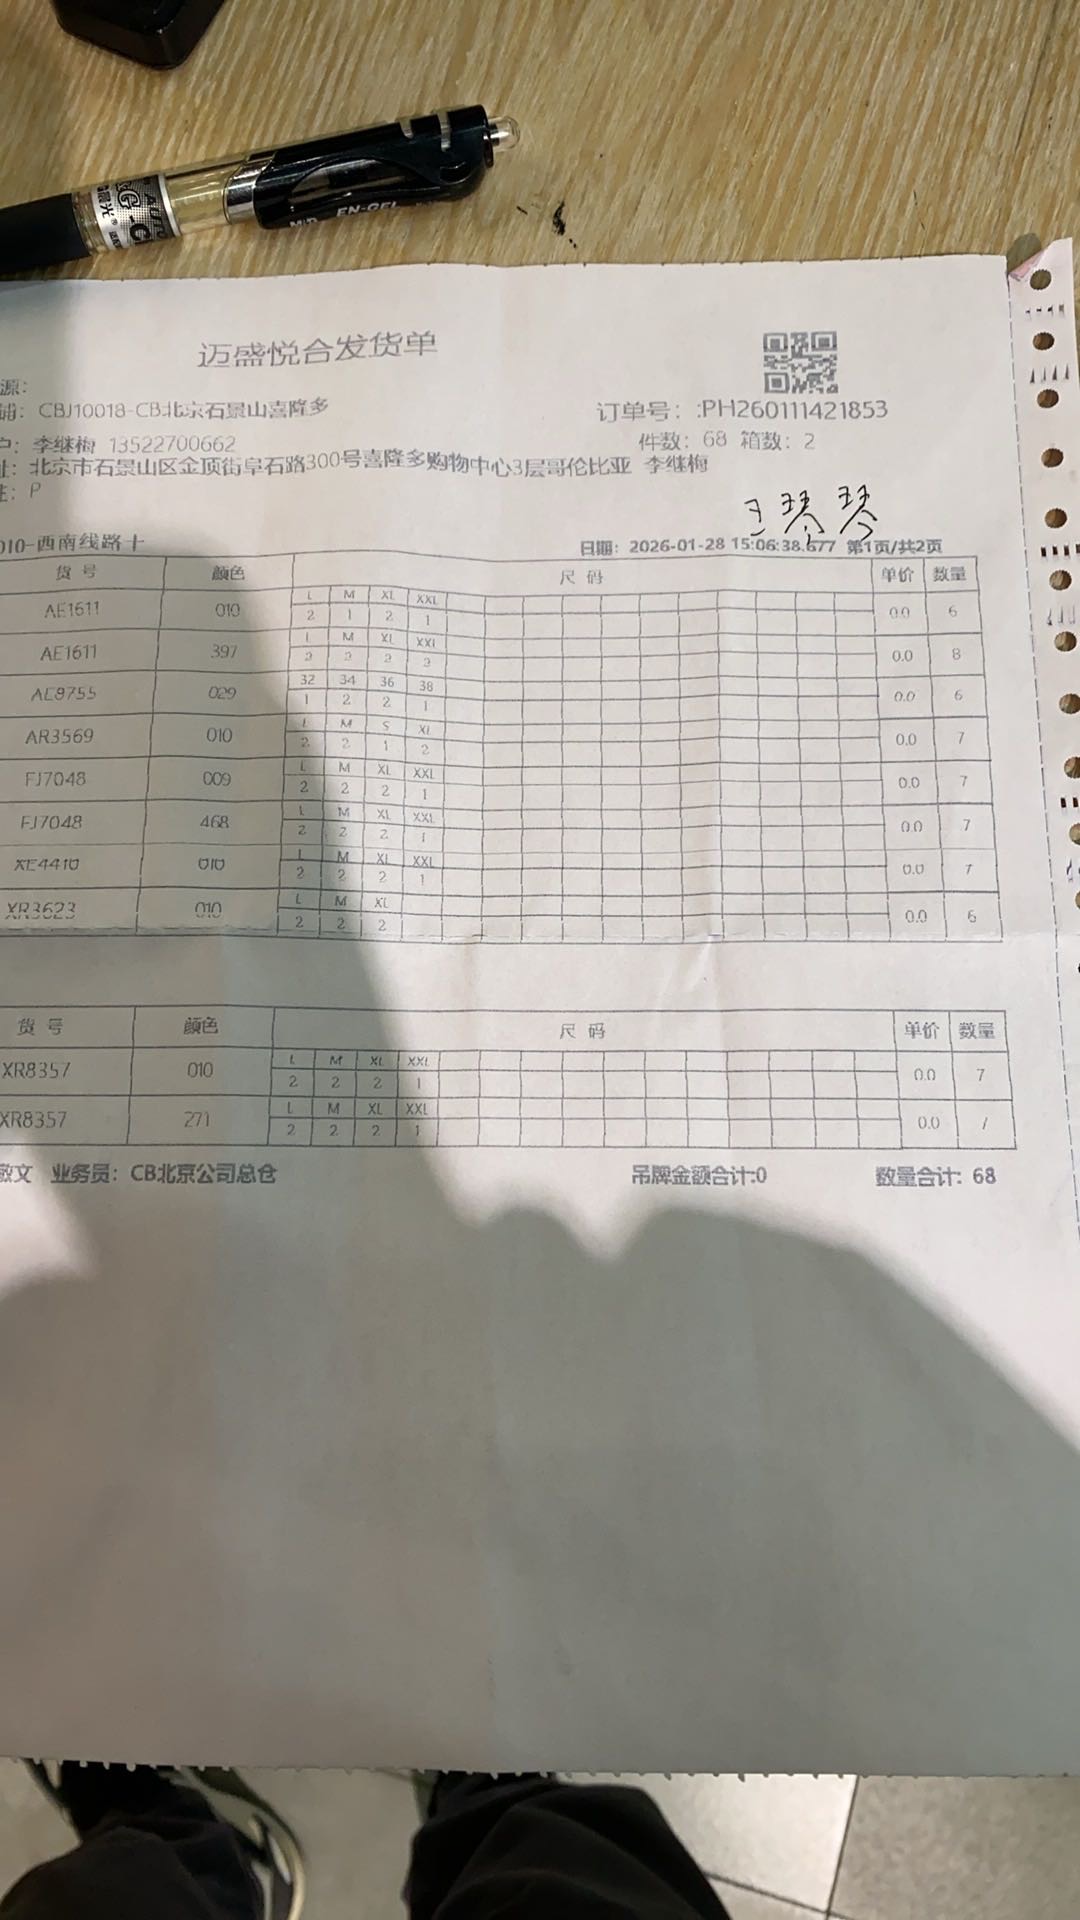 EN-GEL
迈盛悦合发货单
源:
铺: CBJ10018-CB北京石景山喜隆多
订单号: :PH260111421853
户: 李继梅 13522700662
件数: 68 箱数: 2
址: 北京市石景山区金顶街阜石路300号喜隆多购物中心3层哥伦比亚 李继梅
注: P
王琴琴
010-西南线路十
日期: 2026-01-28 15:06:38.677 第1页/共2页
货号 颜色 尺码 单价 数量
L M XL XXL
AE1611 010 0.0 6
2 1 2 1
L M XL XXL
AE1611 397 0.0 8
2 2 2 2
32 34 36 38
AE9755 029 0.0 6
1 2 2 1
L M S XL
AR3569 010 0.0 7
2 2 1 2
L M XL XXL
FJ7048 009 0.0 7
2 2 2 1
L M XL XXL
FJ7048 468 0.0 7
2 2 2 1
L M XL XXL
XE4410 010 0.0 7
2 2 2 1
L M XL
XR3623 010 0.0 6
2 2 2
货号 颜色 尺码 单价 数量
L M XL XXL
XR8357 010 0.0 7
2 2 2 1
L M XL XXL
XR8357 271 0.0 7
2 2 2 1
敬文 业务员: CB北京公司总仓 吊牌金额合计:0 数量合计: 68